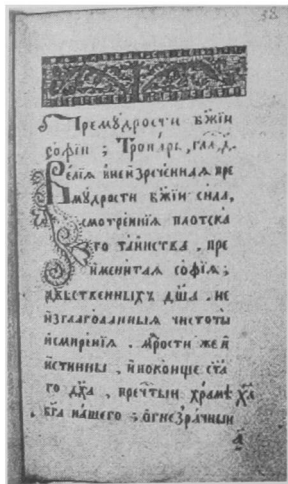 38
Премꙋ́дрости бж҃їи
софїи ; Тропа́рь , гла́, д҃.
Ве́лїѧ и҆неизрече́ннаѧ пре
мꙋ́дрости бж҃їи си́ла,
смотре́нїѧ плотска
го та́инства . пре
имени́таѧ софі́ѧ ;
дв҃ьственныхъ дш҃а . не
изглаго́ланныѧ чистоты̀
и҆смире́нїѧ . мр҃ости же и҆
и҆́стинны , и҆поко́нще ст҃а
го дх҃а , пречⷭ҇тыи хра́ме хⷭ҇а
бг҃а на́шего ; ѻ҆гнезра́чныи
а҆